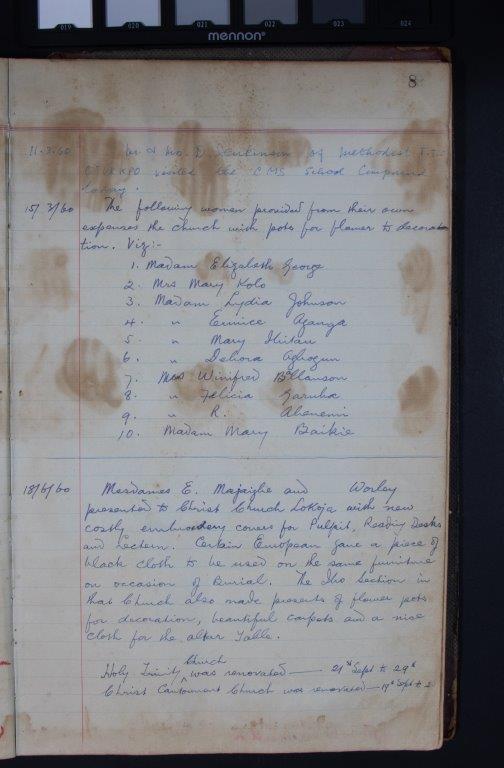 019 020 021 022 023 024
mennon®
8
11.3.60 Mr & Mrs. D. Jenkinson of Methodist
OTUKKPO visited the CMS School Compound
today.
15/3/60 The following women provided from their own
expenses the church with pots for flower to decora
tion. Viz:-
1. Madam Elizabeth George
2. Mrs Mary Kolo
3. Madam Lydia Johnson
4. " Eunice Aganga
5. " Mary
6. " Debora Agbogun
7. Mrs Winifred
8. " Felicia Garuba
9. " R.
10. Madam Mary Baikie
18/6/60 Mesdames E. and Worley
presented to Christ Church Lokoja with new
costly embroidery covers for Pulpit, Reading Desks
and Lectern. Certain European gave a piece of
black cloth to be used on the same furniture
on occasion of Burial. The Ibo Section in
that Church also made presents of flower pots
for decoration, beautiful carpets and a nice
cloth for the altar Table.
Holy Trinity Church was renovated — 21st Sept to 29th
Christ Cantonment Church was renovated — Sept to